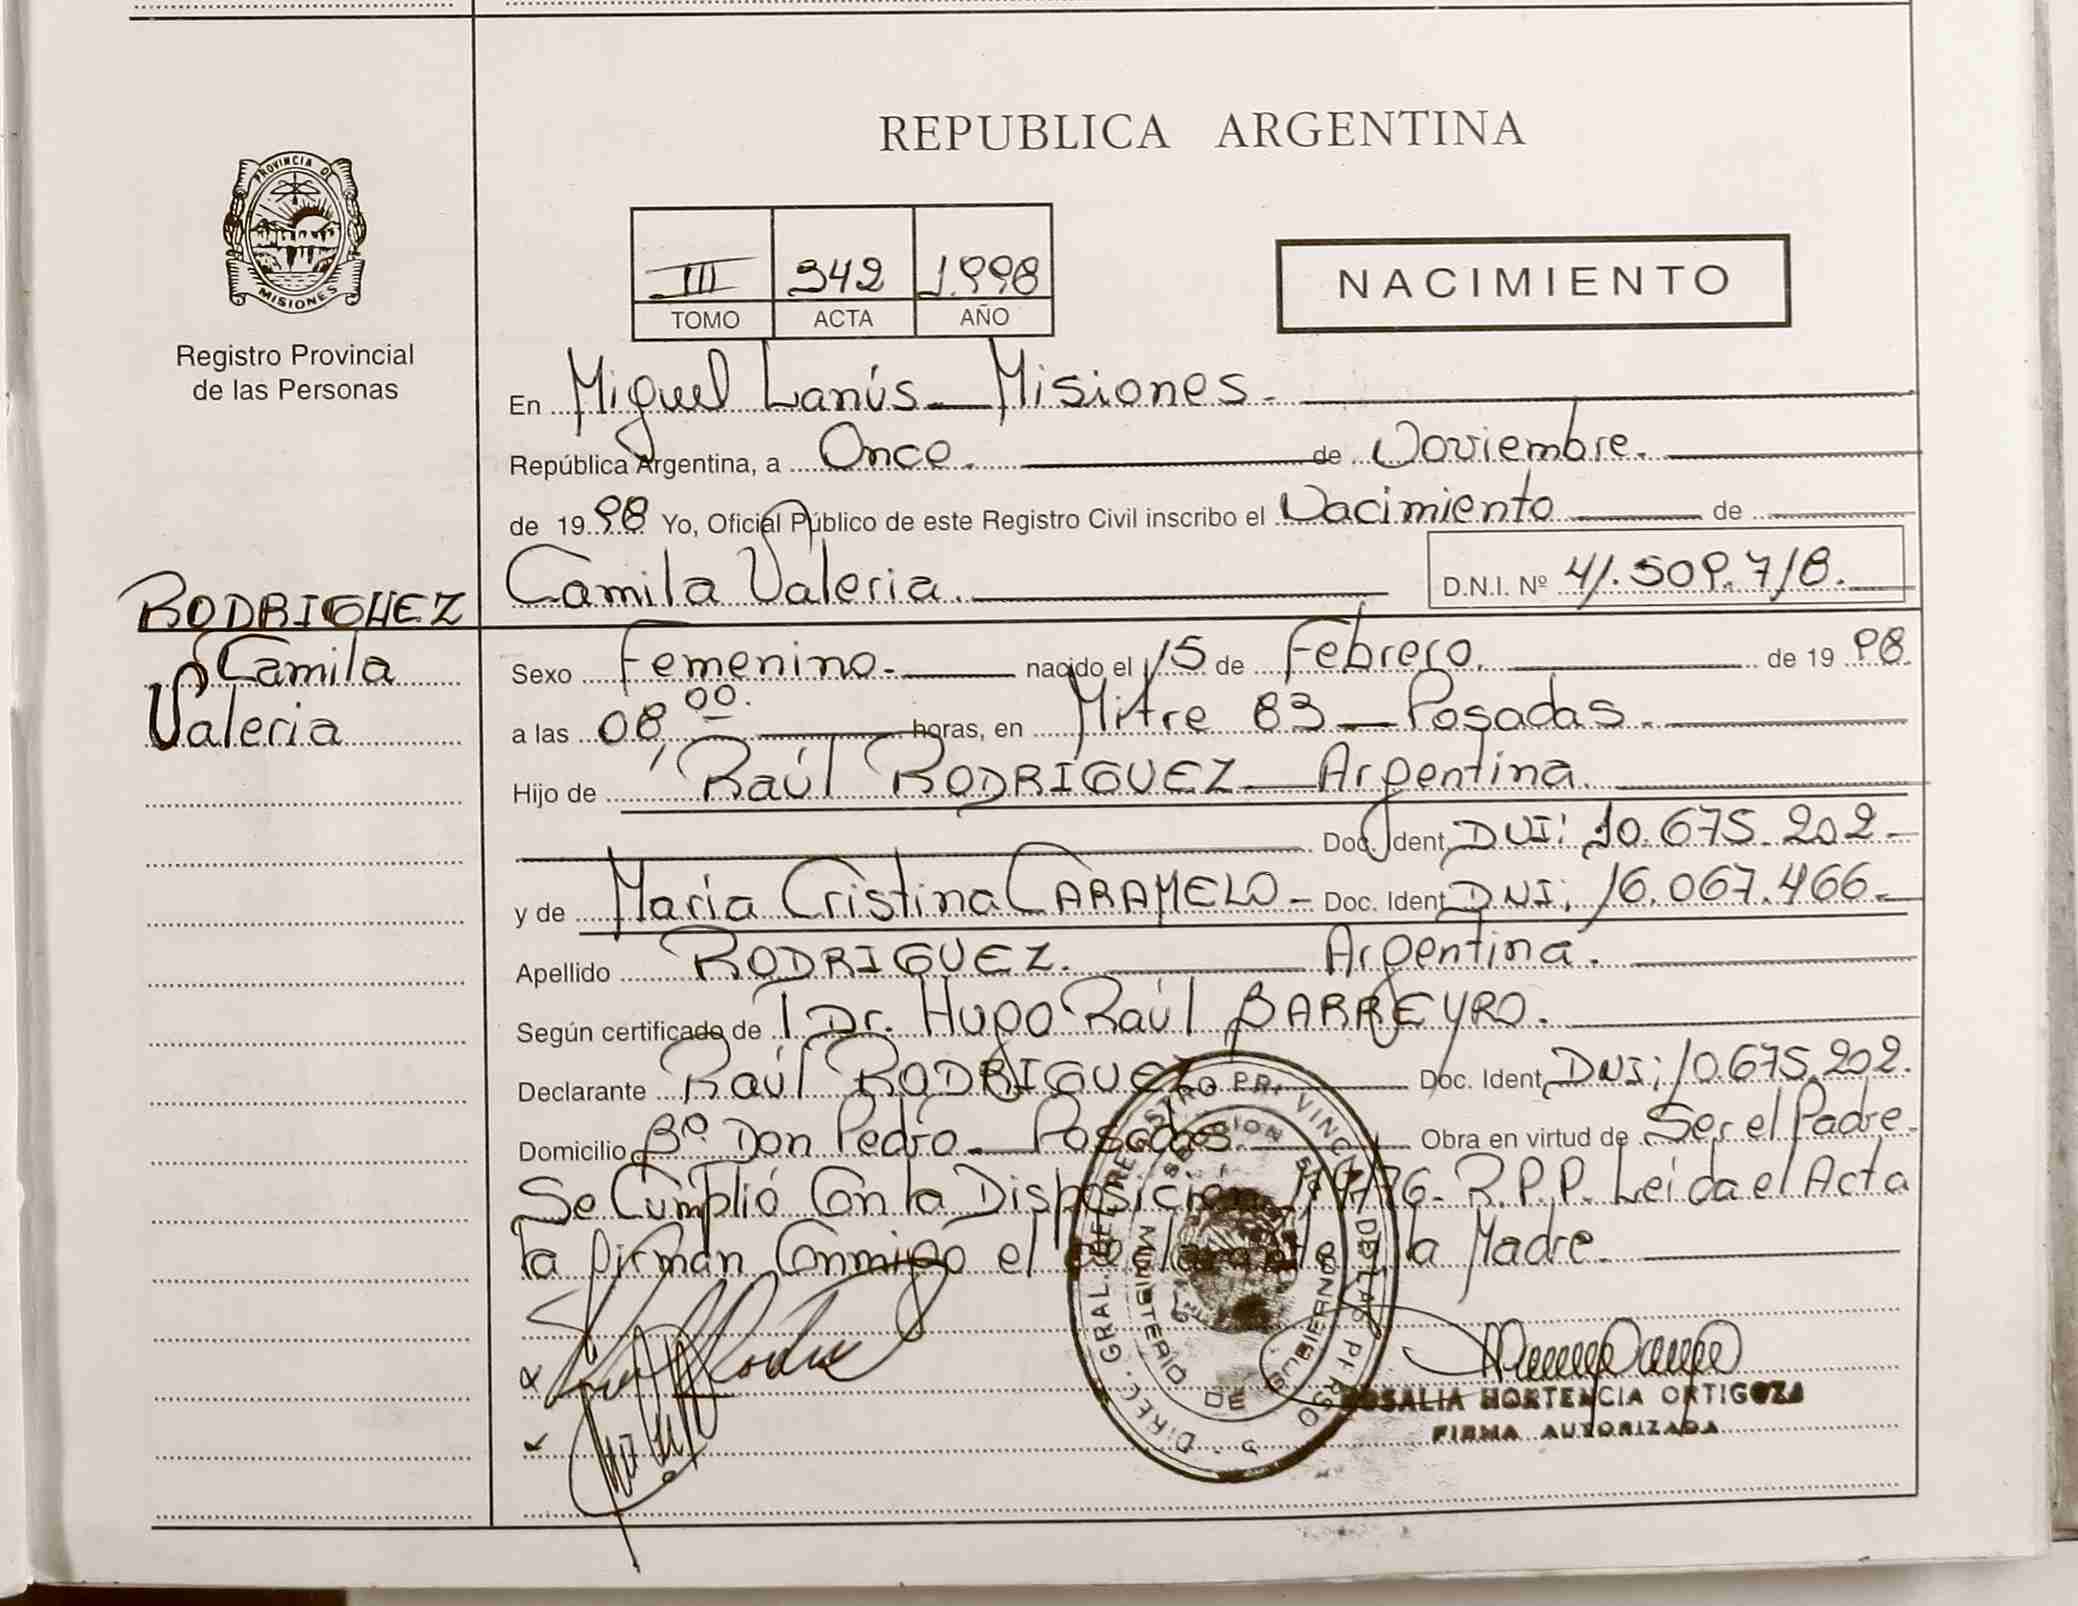 REPUBLICA ARGENTINA
PROVINCIA DE
MISIONES
Registro Provincial
de las Personas
III 342 1.998
TOMO ACTA AÑO
NACIMIENTO
En Miguel Lanús - Misiones.
República Argentina, a Once. de Noviembre.
de 19 98 Yo, Oficial Público de este Registro Civil inscribo el Nacimiento de
Camila Valeria. D.N.I. Nº 41.509.718.
RODRIGUEZ
Camila
Valeria
Sexo Femenino. nacido el 15 de Febrero. de 19 98.
a las 08 00. horas, en Mitre 83 - Posadas.
Hijo de Raúl RODRÍGUEZ - Argentina.
Doc. Ident. DNI: 10.675.202 -
y de María Cristina CARAMELO - Doc. Ident. DNI; 16.067.466 -
Apellido RODRIGUEZ. Argentina.
Según certificado de Dr. Hugo Raúl BARREYRO.
Declarante Raúl RODRIGUEZ Doc. Ident. DNI; 10.675.202.
Domicilio Bº. Don Pedro - Posadas. Obra en virtud de Ser el Padre.
Se Cumplió Con la Disposición R.P.P. Leida el Acta
la firman Conmigo el declarante y la Madre.
DIREC. GRAL. DEL REGISTRO PROVINCIAL DE LAS PERSONAS
MINISTERIO DE GOBIERNO
ROSALIA HORTENCIA ORTIGOZA
FIRMA AUTORIZADA